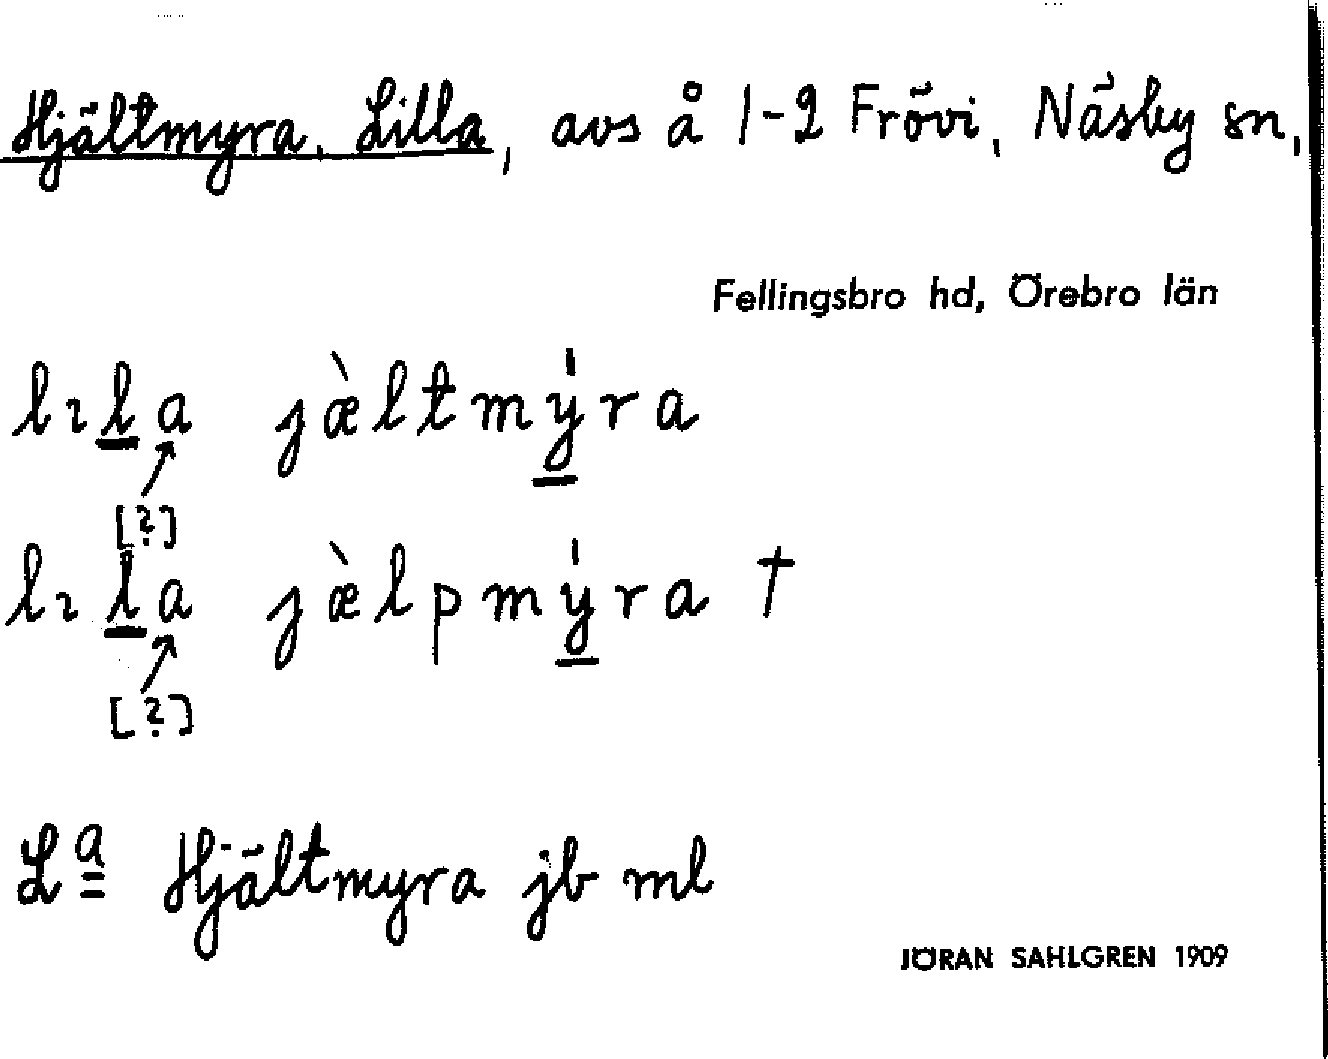 Hjältmyra, Lilla, avs å 1-2 Frövi, Näsby sn,
Fellingsbro hd, Örebro län
lıla jæ̀ltmýra
[?]
lıla jæ̀lpmýra †
[?]
Lª Hjältmyra jb ml
JÖRAN SAHLGREN 1909